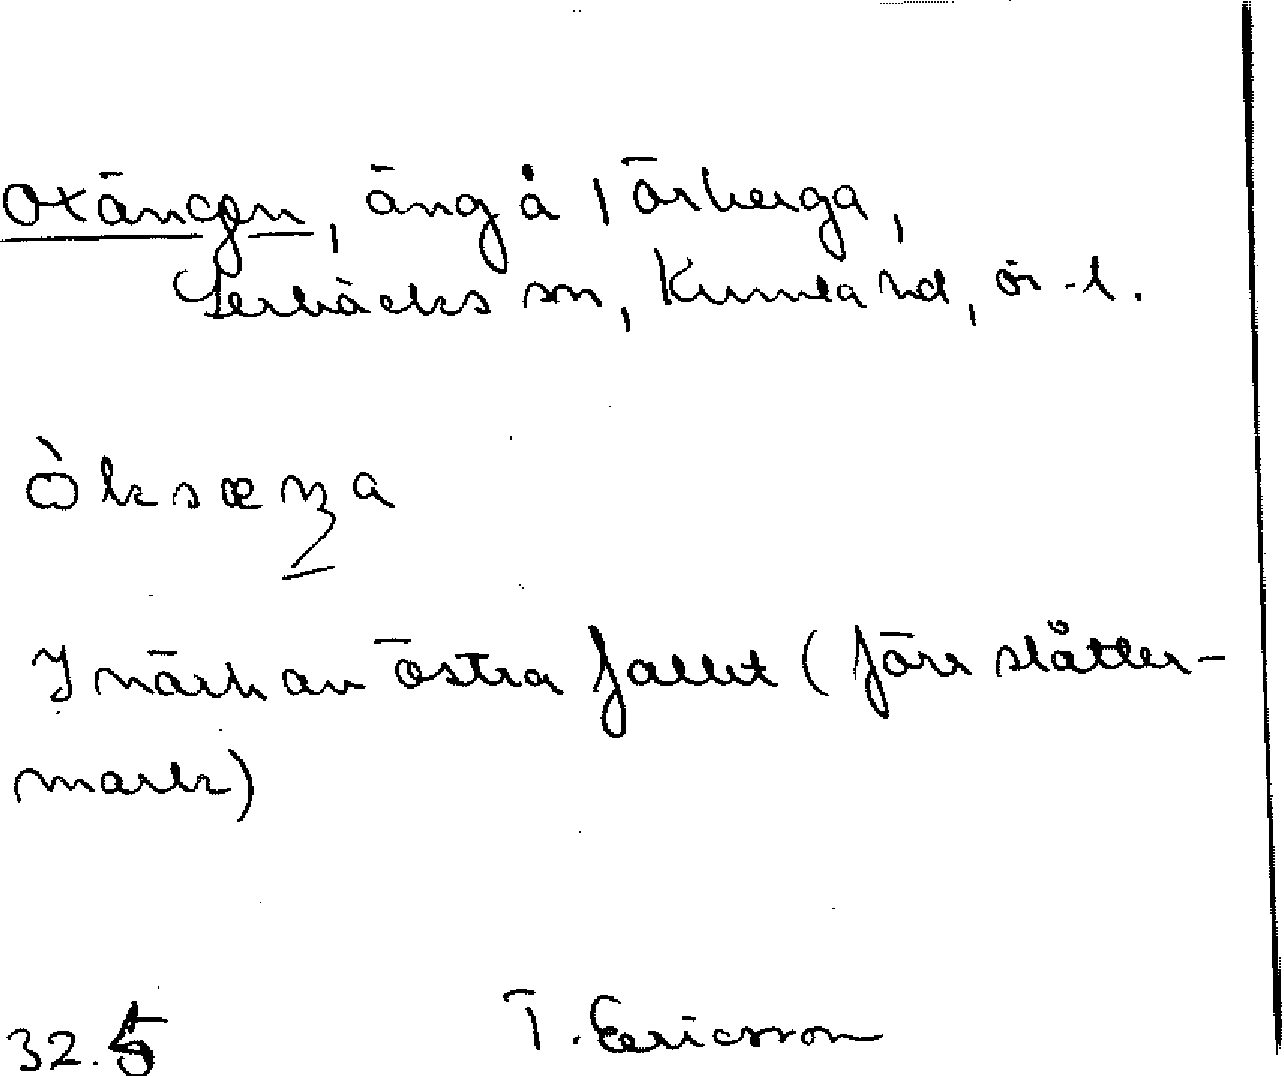 Oxängen, äng å 1 Örberga,
Lerbäcks sn, Kumla hd, ör. l.
òksæŋa
I närh av östra fallet (förr slåtter-
mark)
32.5 T. Ericsson